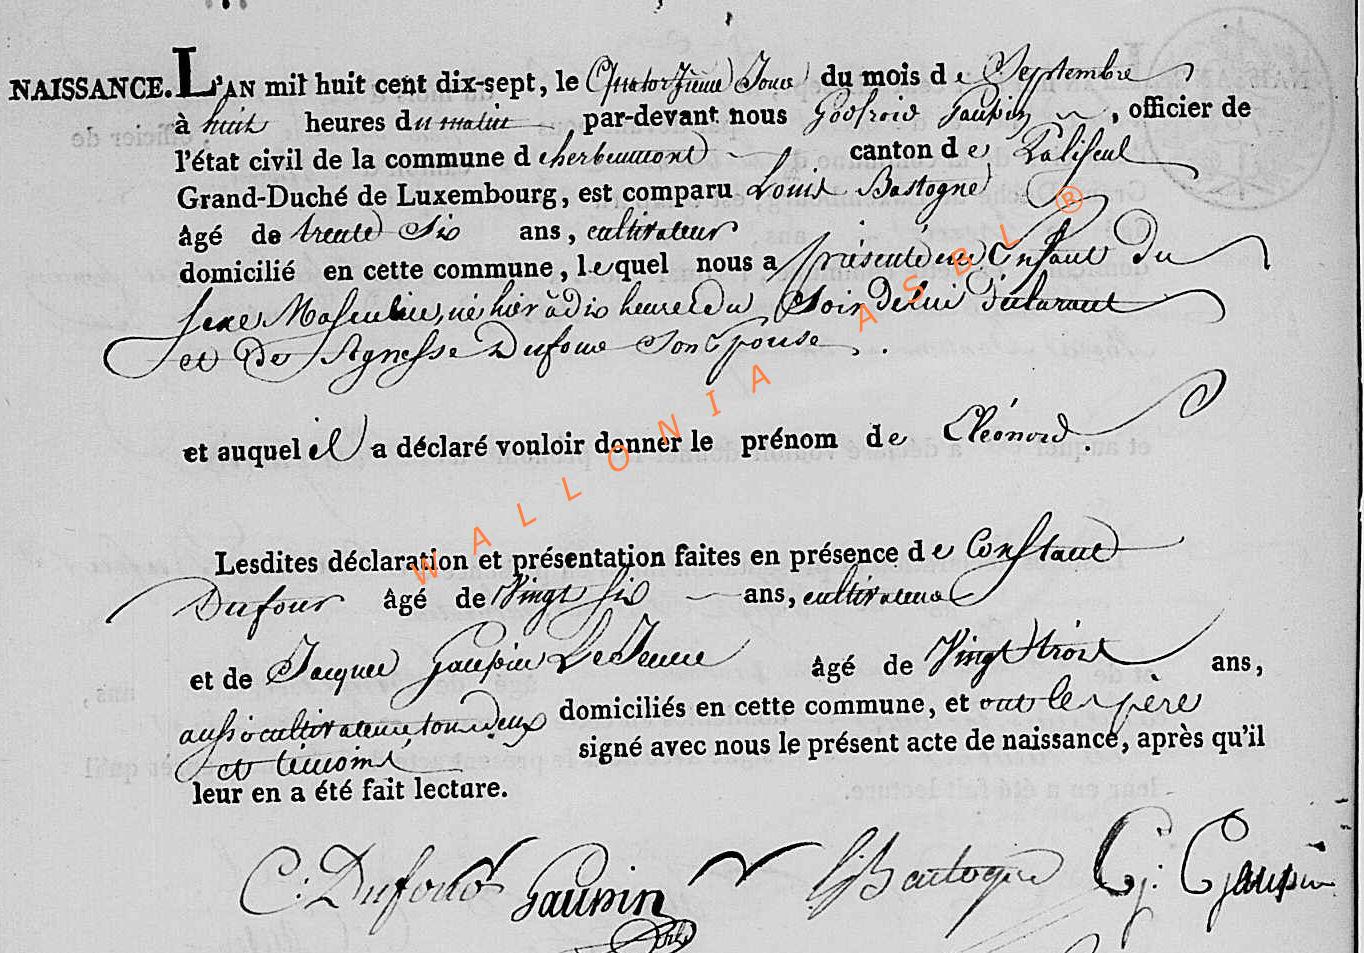 NAISSANCE. L'AN mil huit cent dix-sept, le Quatorzième Jour du mois de Septembre
à huit heures du matin, par-devant nous Godfroid Gaupin, officier de
l'état civil de la commune d'herbeumont canton de Paliseul
Grand-Duché de Luxembourg, est comparu Louis Bastogne
âgé de trente Six ans, cultivateur
domicilié en cette commune, lequel nous a présenté un Enfant du
sexe Masculin, né hier à dix heures du Soir de lui déclarant
et De Agnesse Dufour Son Epouse.
et auquel il a déclaré vouloir donner le prénom de Cléonord.
Lesdites déclaration et présentation faites en présence de Constant
Dufour âgé de Vingt Six ans, cultivateur
et de Jacques Gaupin Le Jeune âgé de Vingt trois ans,
aussi cultivateur, tous deux domiciliés en cette commune, et ont les père
et témoins signé avec nous le présent acte de naissance, après qu'il
leur en a été fait lecture.
C. Dufour Gaupin L Bastogne G. Gaupin
WALLONIA ASBL ®